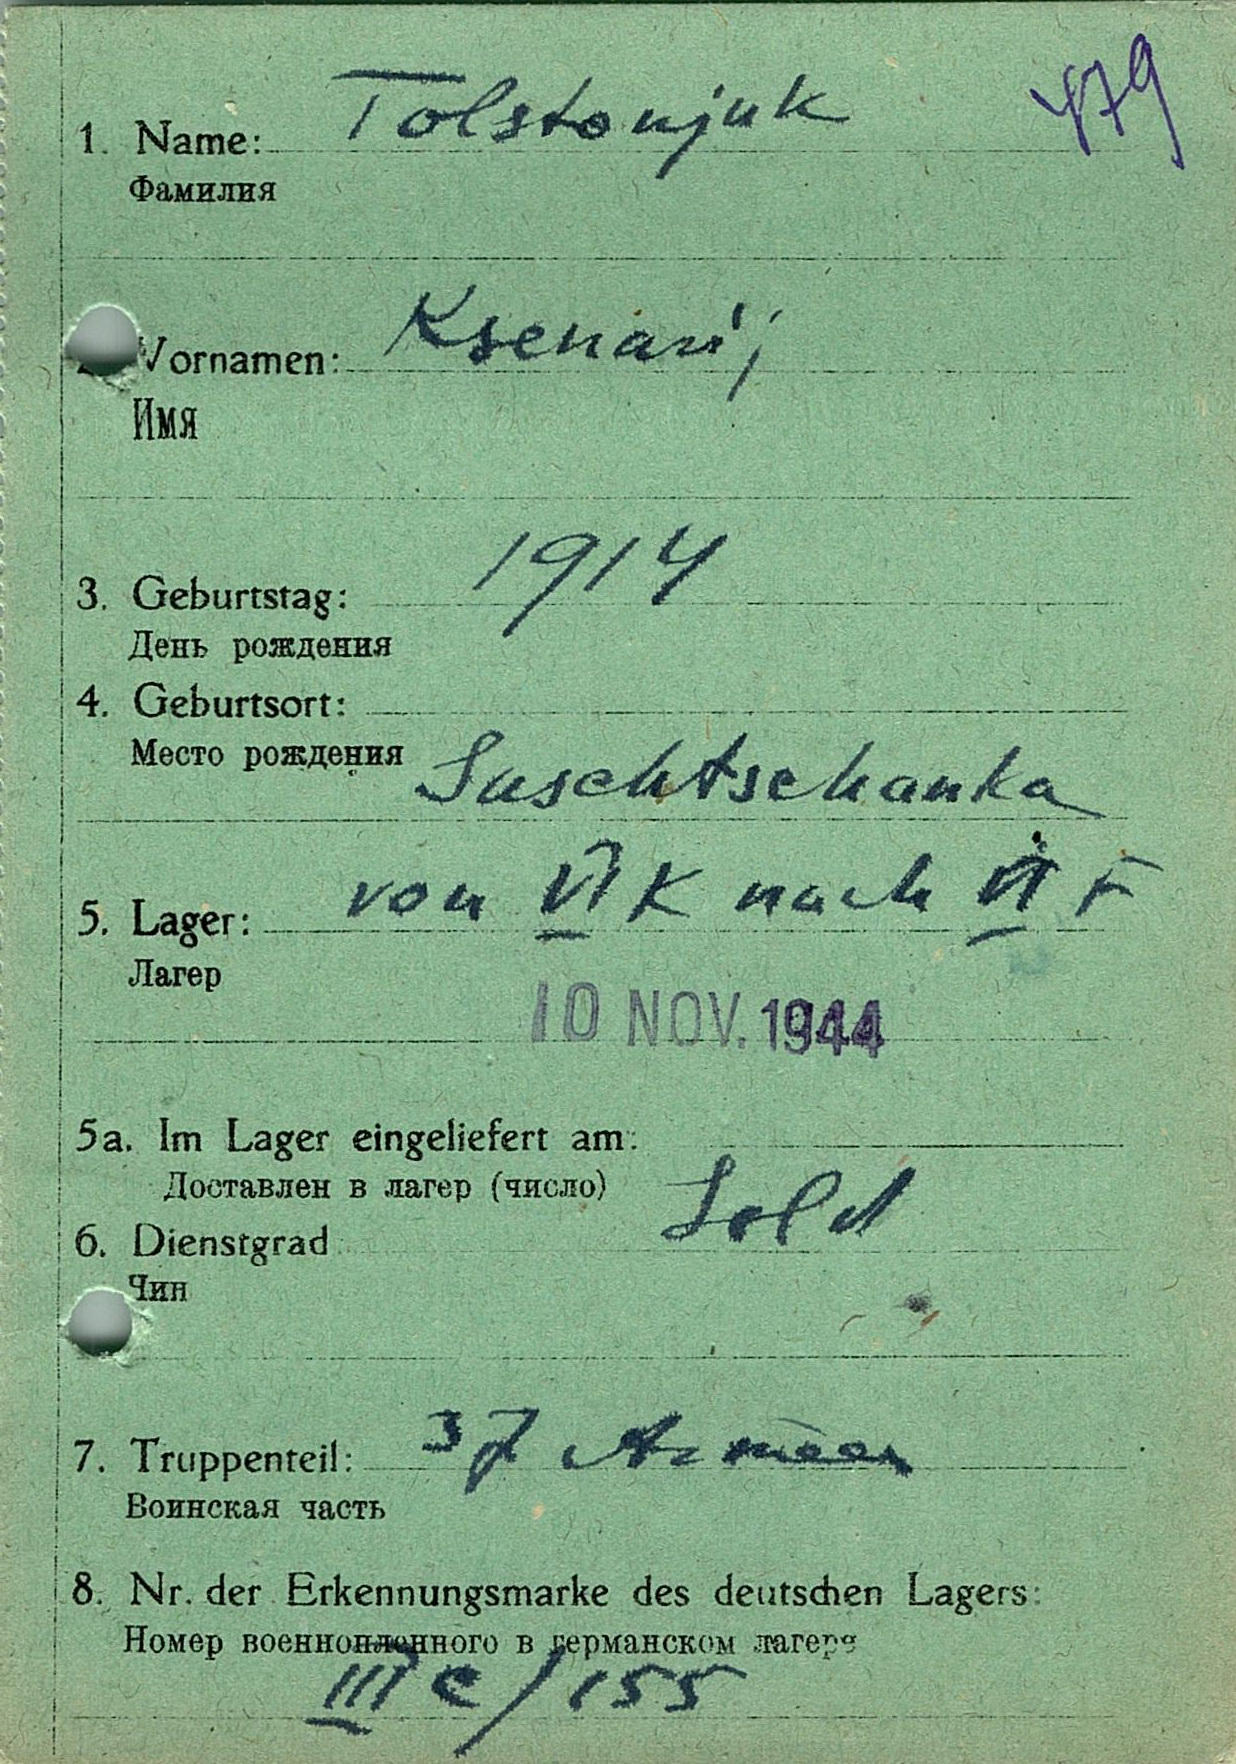 479
1. Name: Tolstonjuk
Фамилия
Vornamen: Ksenarij
Имя
3. Geburtstag: 1914
День рождения
4. Geburtsort:
Место рождения Suschtschanka
5. Lager: von VI K nach VI F
Лагер
10 NOV. 1944
5a. Im Lager eingeliefert am:
Доставлен в лагер (число)
6. Dienstgrad Sold
Чин
7. Truppenteil: 37 Armee
Воинская часть
8. Nr. der Erkennungsmarke des deutschen Lagers:
Номер военнопленного в германском лагере
III C/155